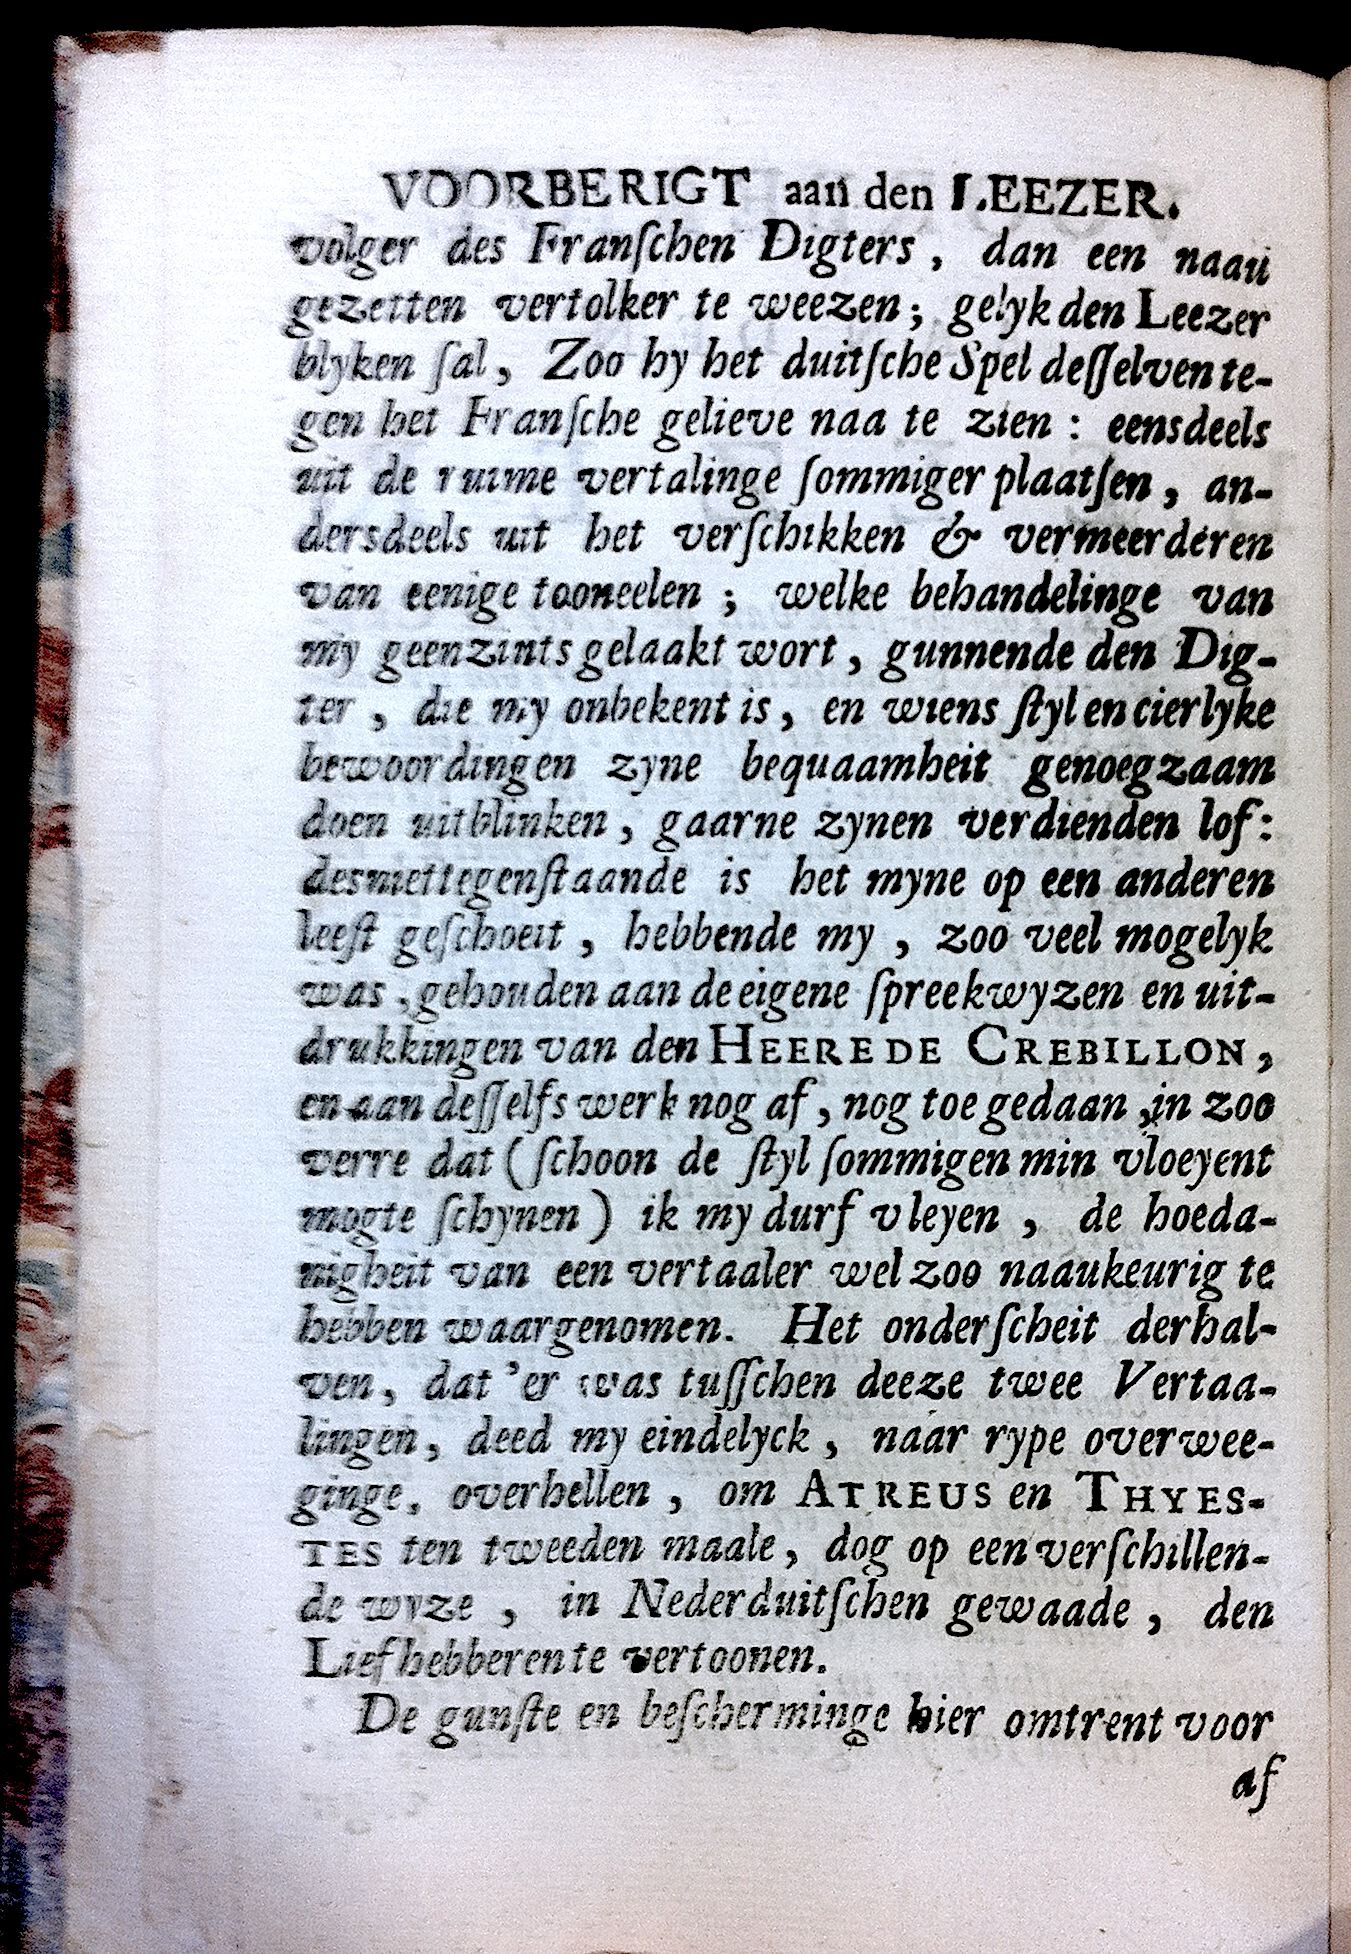 VOORBERIGT aan den LEEZER.
volger des Franſchen Digters, dan een naau
gezetten vertolker te weezen; gelyk den Leezer
blyken ſal, Zoo hy het duitſche Spel deſſelven te-
gen het Franſche gelieve naa te zien: eensdeels
uit de ruime vertalinge ſommiger plaatſen, an-
dersdeels uit het verſchikken & vermeerderen
van eenige tooneelen; welke behandelinge van
my geenzints gelaakt wort, gunnende den Dig-
ter, die my onbekent is, en wiens ſtyl en cierlyke
bewoordingen zyne bequaamheit genoegzaam
doen uitblinken, gaarne zynen verdienden lof:
desniettegenſtaande is het myne op een anderen
leeſt geſchoeit, hebbende my, zoo veel mogelyk
was, gehouden aan de eigene ſpreekwyzen en uit-
drukkingen van den HEERE DE CREBILLON,
en aan deſſelfs werk nog af, nog toe gedaan, in zoo
verre dat (ſchoon de ſtyl ſommigen min vloeyent
mogte ſchynen) ik my durf vleyen, de hoeda-
nigheit van een vertaaler wel zoo naaukeurig te
hebben waargenomen. Het onderſcheit derhal-
ven, dat 'er was tuſſchen deeze twee Vertaa-
lingen, deed my eindelyck, naar rype overwee-
ginge, overhellen, om ATREUS en THYES-
TES ten tweeden maale, dog op een verſchillen-
de wyze, in Nederduitſchen gewaade, den
Liefhebberen te vertoonen.
De gunſte en beſcherminge hier omtrent voor
af